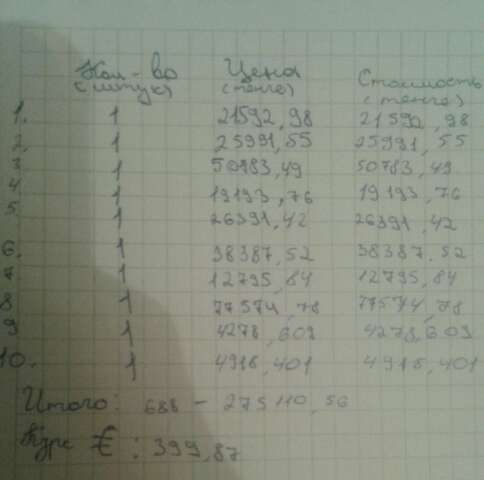 Кол-во Цена Стоимость
(штук) (тенге) (тенге)
1. 1 21592,98 21592,98
2. 1 25991,55 25991,55
3 1 50783,49 50783,49
4 1 19193,76 19193,76
5. 1 26391,42 26391,42
6. 1 38387,52 38387,52
7 1 12795,84 12795,84
8 1 77574,78 77574,78
9 1 4278,609 4278,609
10. 1 4918,401 4918,401
Итого: 688 - 275110,56
Курс € : 399,87